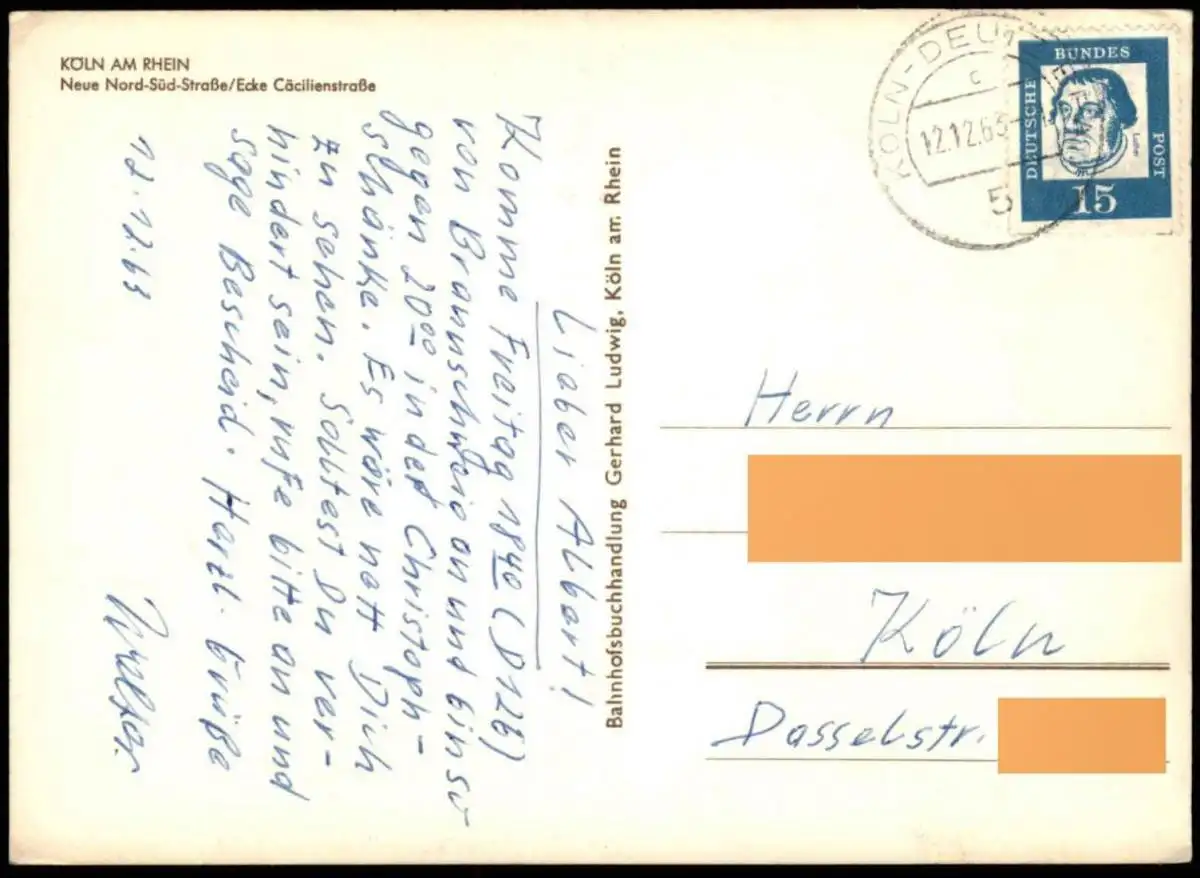 KÖLN AM RHEIN
Neue Nord-Süd-Straße/Ecke Cäcilienstraße
12.12.63
Lieber Albert!
Komme Freitag 18 40 (D 126)
von Braunschweig an und bin so
gegen 20 00 in der Christoph-
schänke. Es wäre nett Dich
zu sehen. Solltest Du ver-
hindert sein, rufe bitte an und
sage Bescheid. Herzl. Grüße
Walter.
Bahnhofsbuchhandlung Gerhard Ludwig, Köln am Rhein
KÖLN-DEUTZ
c
12.12.63
5
DEUTSCHE
BUNDES
POST
Luther
15
Herrn
Köln
Dasselstr.